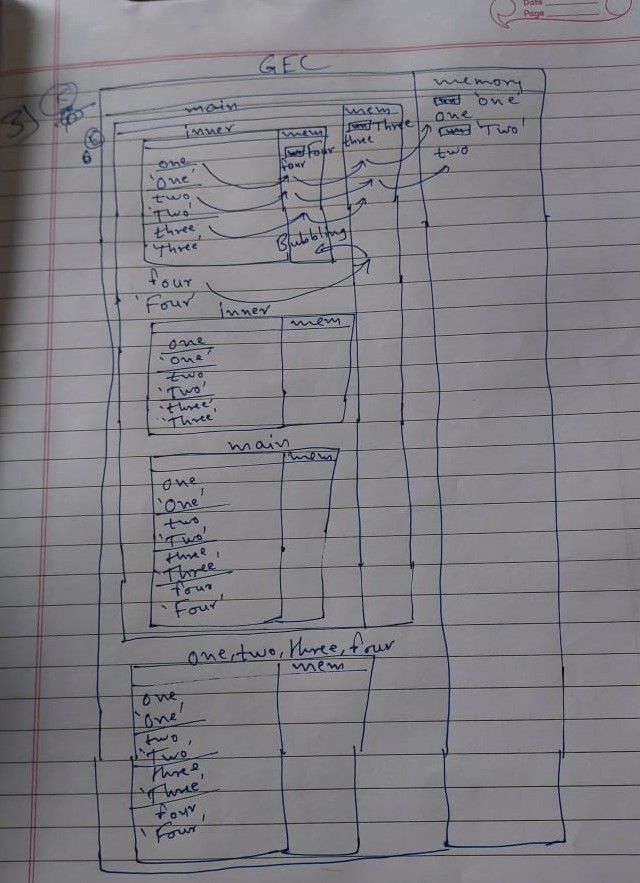 Date
Page
3)
GEC
memory
'One'
one
'Two'
two
main
mem
Three
three
inner
mem
Four
four
one
'One'
two
'Two'
three
'Three'
Bubbling
four
'Four'
inner
mem
one
'One'
two
'Two'
three
'Three'
main
mem
one
'One'
two
'Two'
three
'Three'
four
'Four'
one, two, three, four
mem
one
'One'
two
'Two'
three
'Three'
four
'Four'